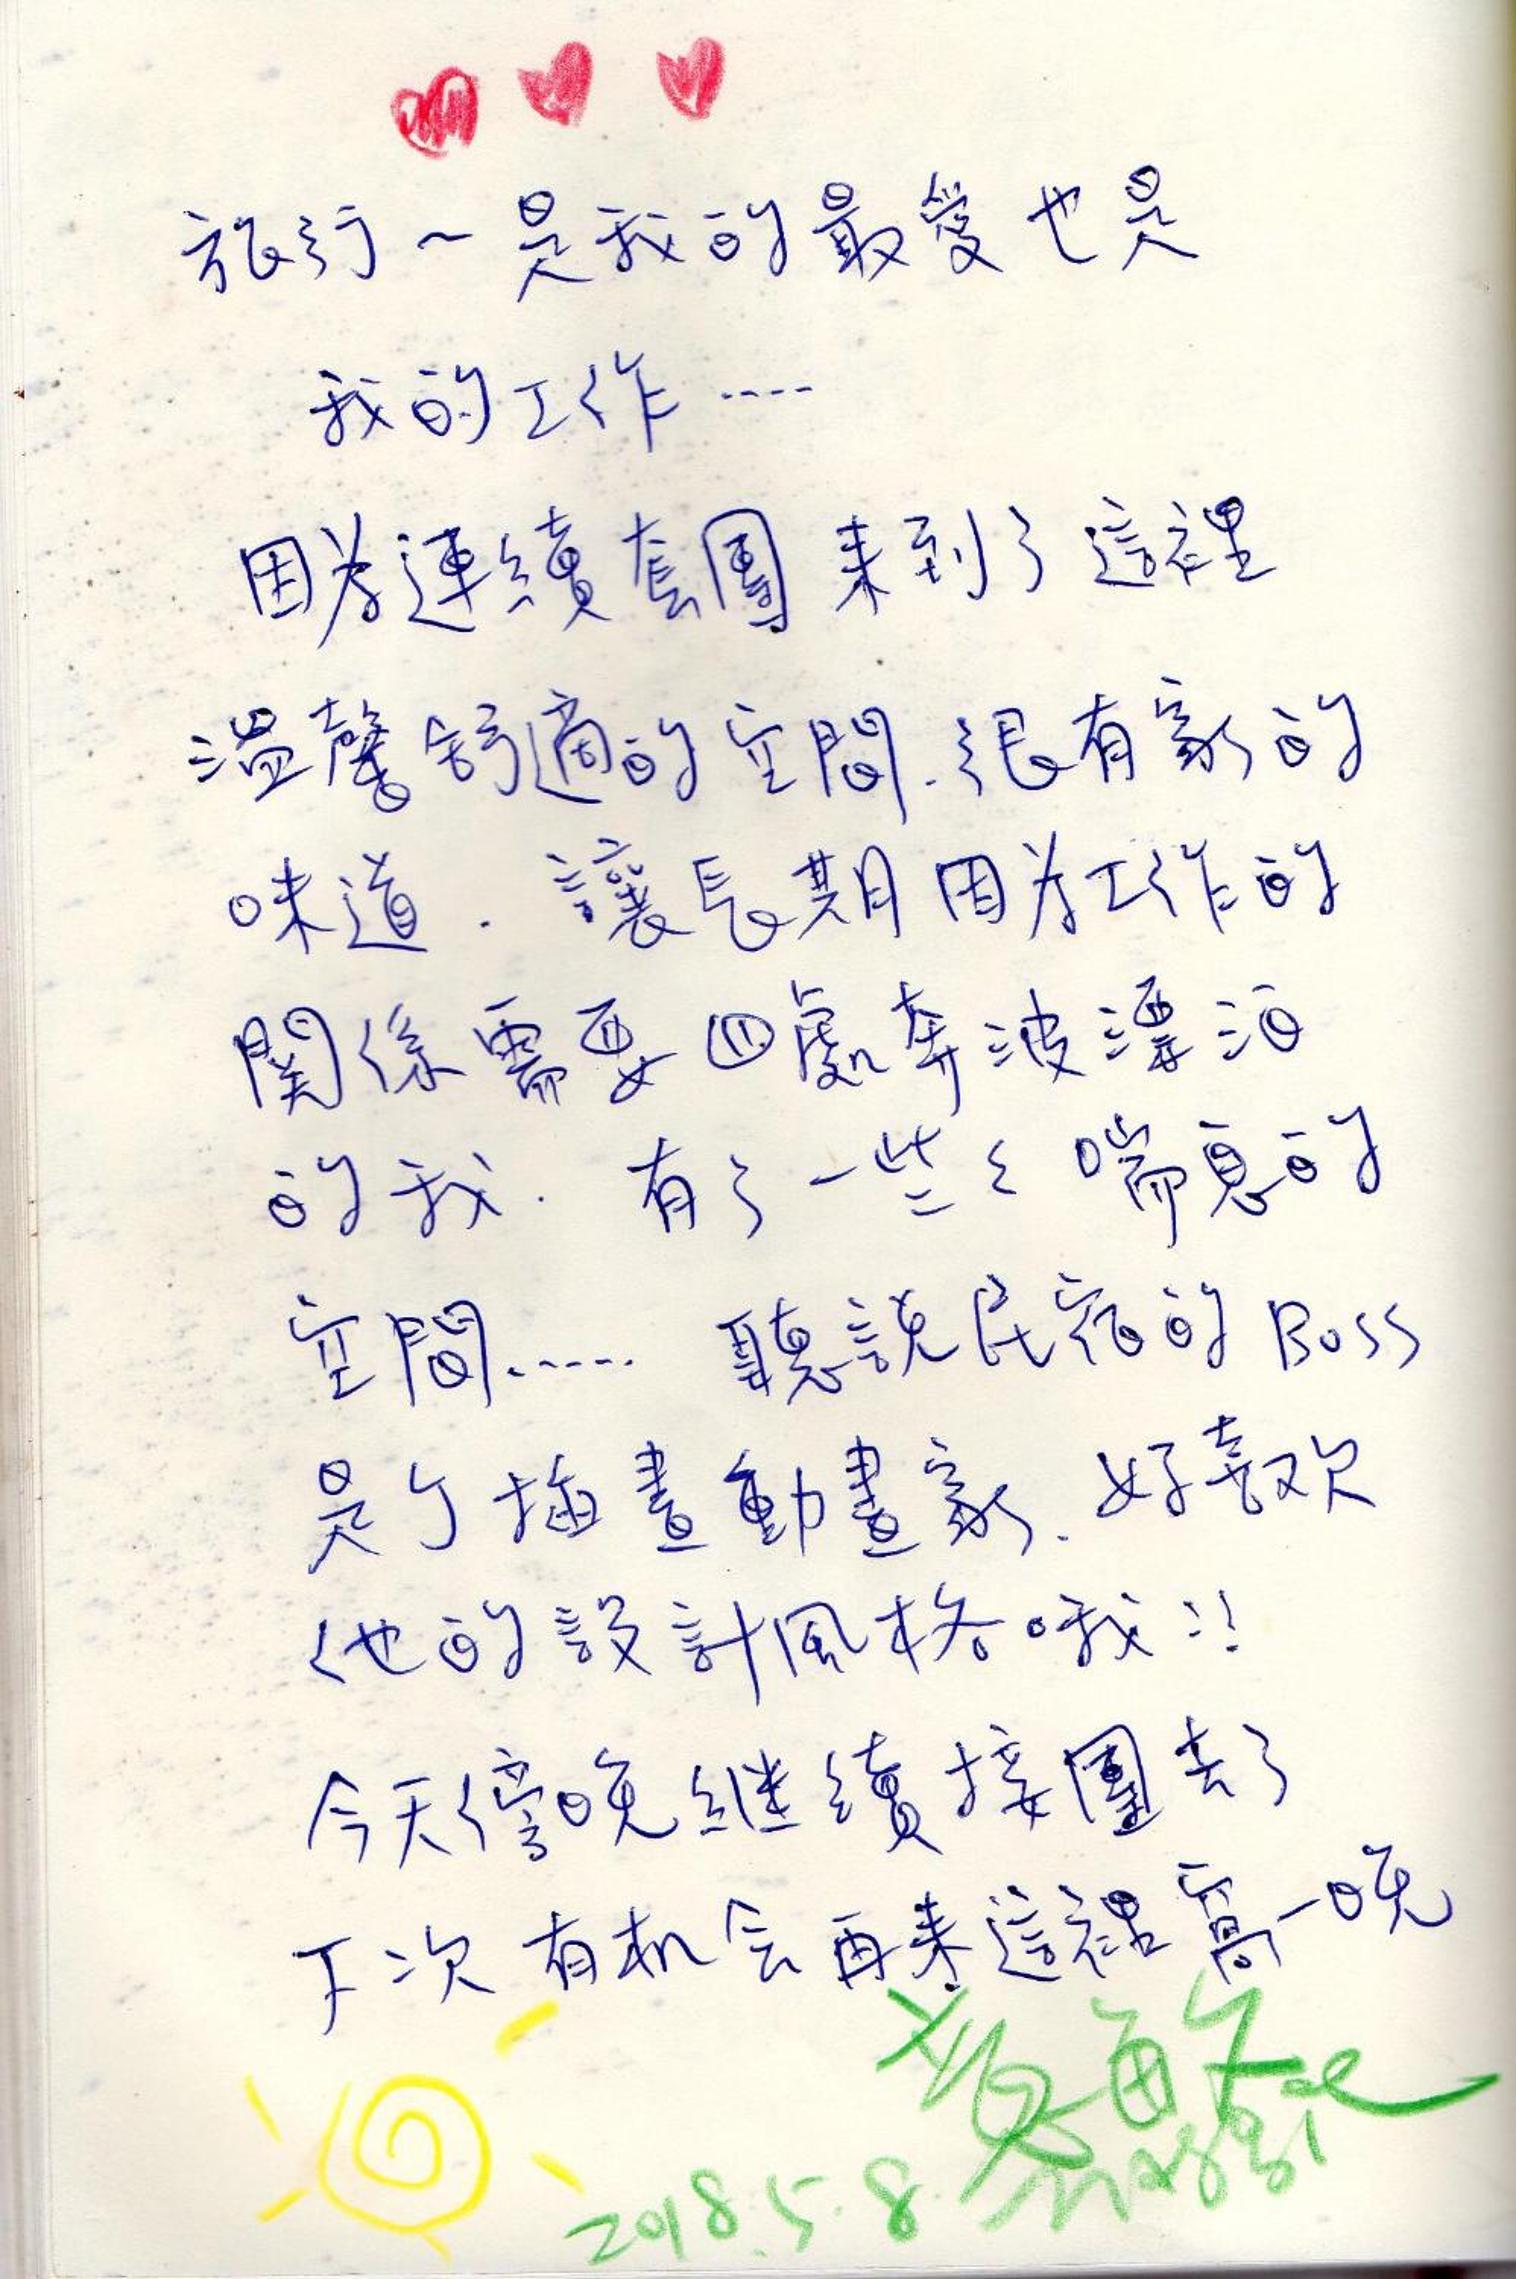 旅行～是我的最愛也是
我的工作‧‧‧‧
因為連續套團來到了這裡
溫馨舒適的空間.很有家的
味道.讓長期因為工作的
關係需要四處奔波漂泊
的我.有了一些些喘息的
空間...... 聽說民宿的Boss
是个插畫動畫家.好喜歡
他的設計風格哦!!
今天傍晚继續接團去了
下次有机会再來這裡窩一晚
2018.5.8.